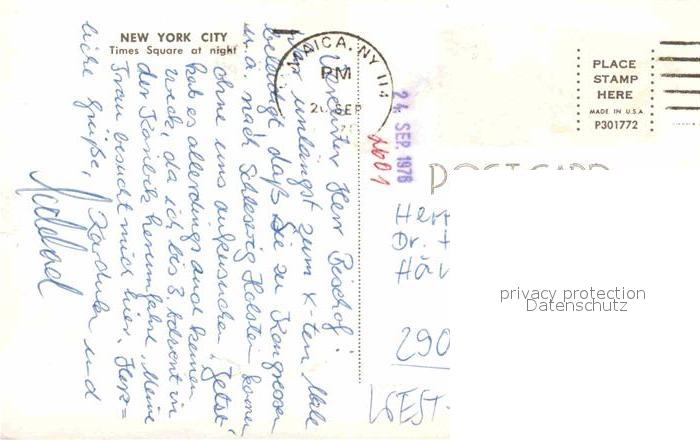 NEW YORK CITY
Times Square at night
JAMAICA, NY 114
PM
20 SEP
24 SEP. 1976
2601
PLACE
STAMP
HERE
MADE IN U.S.A
P301772
POST CARD
Verehrter Herr Bischof!
Mir unlängst zum X-ten Male
bestätigt daß Sie zu Kongressen
u.a. nach Schleswig Holstein kommen
ohne uns aufzusuchen. Jetzt
hat es allerdings auch keinen
Zweck, da ich bis 3. Advent in
der Karibik herumfahre. Meine
Frau besucht mich hier. Herz=
liche Grüße,
und
Herr
Dr.
Häv
290
WEST-
privacy protection
Datenschutz